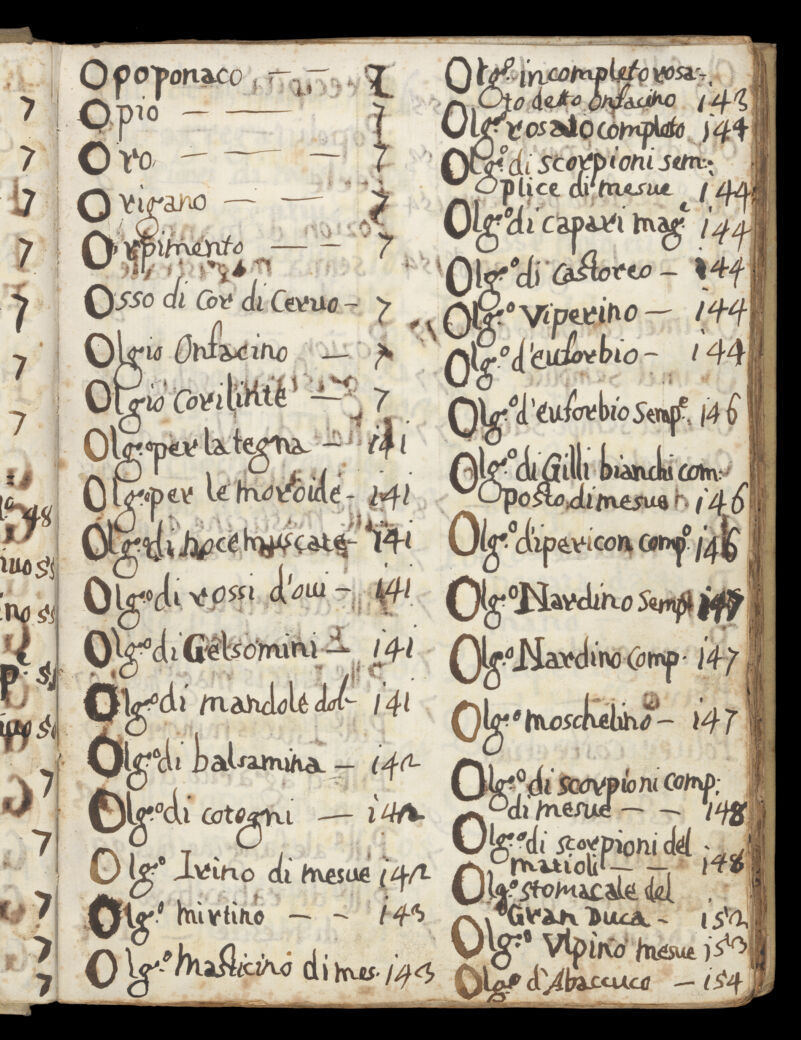 7
7
7
7
7
7
7
48
7
7
7
7
7
Opoponaco — — 7
Opio — — 7
Oro — — — 7
Origano — — 7
Orpimento — — 7
Osso di Cor di Ceruo - 7
Olgio Onfacino — 7
Olgio Corilinte — 7
Olg:o per la tegna — 141
Olg:o per le moroide - 141
Olg:o di noce muscate - 141
Olg:o di rossi d'oui - 141
Olg:o di Gelsomini — 141
Olg:o di mandole dol - 141
Olg:o di balsamina — 142
Olg:o di cotogni — 142
Olg:o Irino di mesue 142
Olg:o mirtino — - 143
Olg:o Masticino di mes. 143
Olg:o incompleto rosa-
to detto onfacino 143
Olg:o rosato completo 144
Olg:o di scorpioni sem:
plice di mesue 144
Olg:o di capari mag.e 144
Olg:o di castoreo — 144
Olg:o Viperino — 144
Olg:o d'euforbio - 144
Olg:o d'euforbio Semp.e 146
Olg:o di Gilli bianchi com:
posto di mesue 146
Olg:o dipericon comp.o 146
Olg:o Nardino Semp. 147
Olg:o Nardino comp. 147
Olg:o moschelino — 147
Olg:o di scorpioni comp:
di mesue — — 148
Olg:o di scorpioni del
matioli — — 148
Olg:o stomacale del
Gran Duca - 152
Olg:o Vlpino mesue 153
Olg:o d'Abaccuco — 154